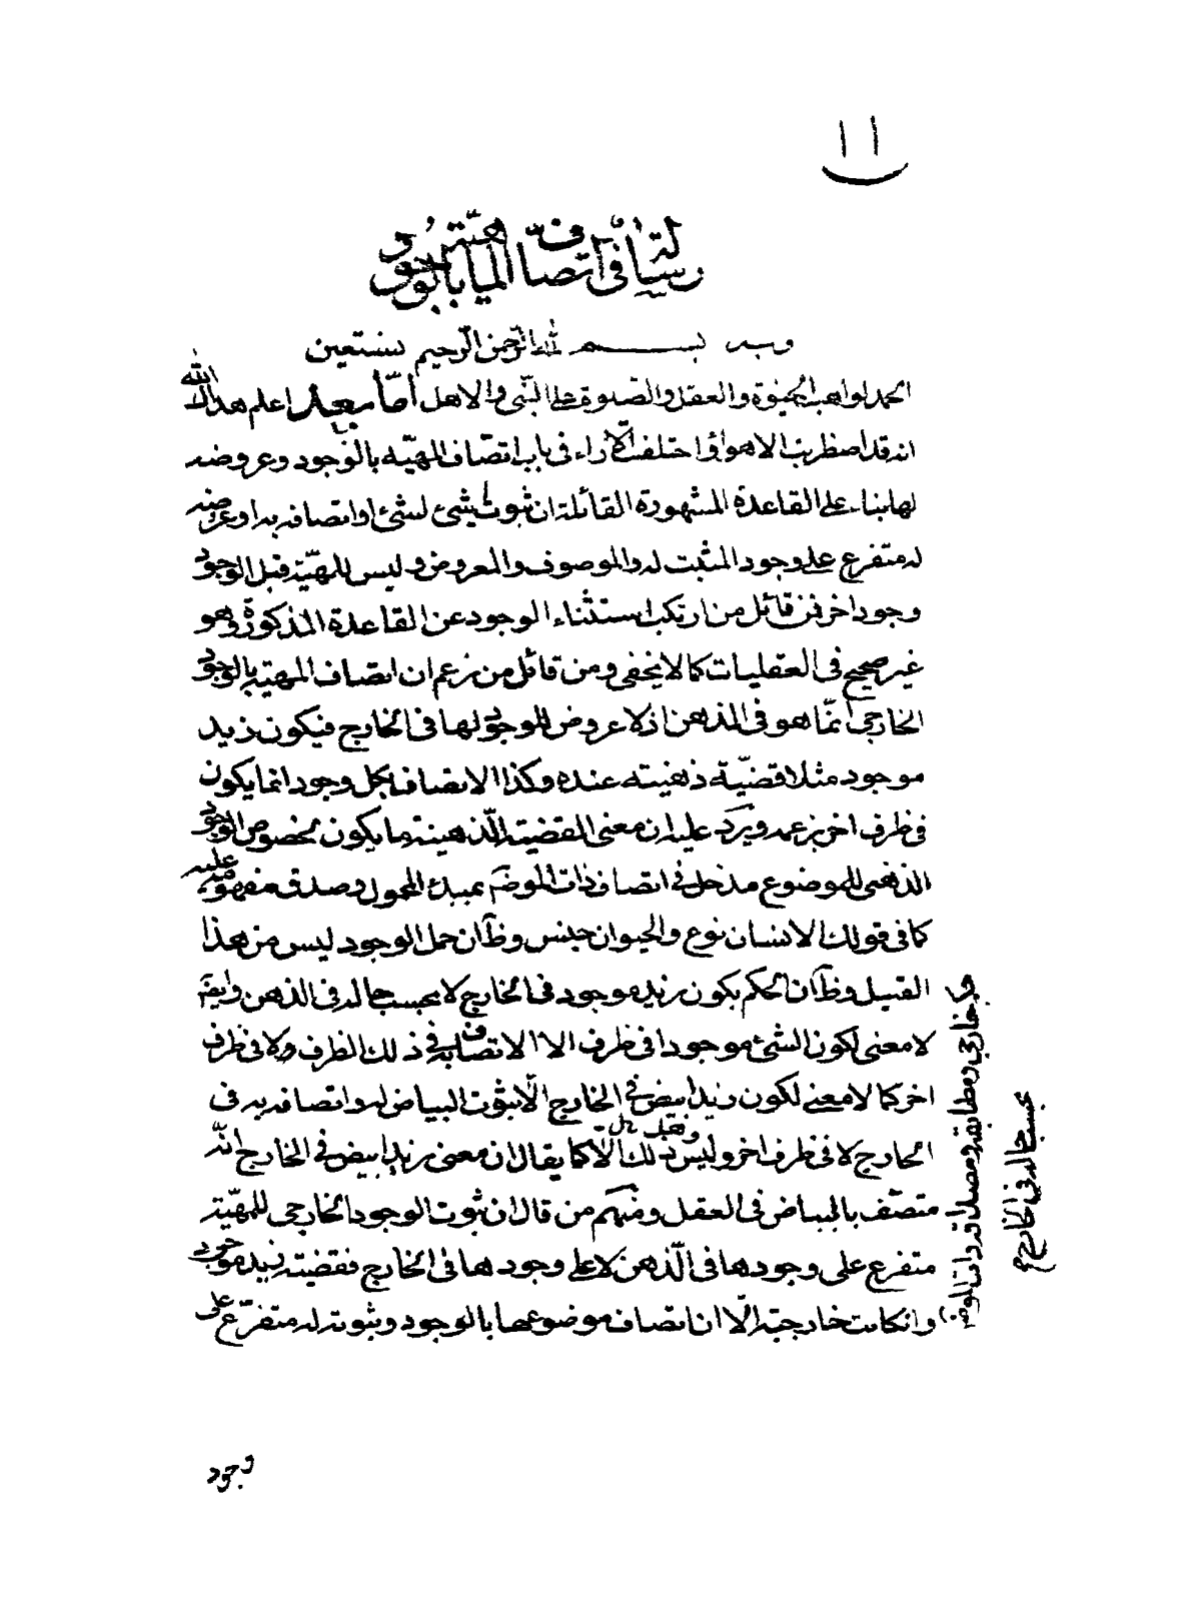 ١١
رسالة في اتصاف المهية بالوجود
وبه بسم الله الرحمن الرحيم نستعين
الحمد لواهب الحيوة والعقل والصلوة على النبي والاهل أمّا بعد اعلم هداك الله
انه قد اضطربت الاهواء واختلفت الآراء في باب اتصاف المهيّة بالوجود وعروضه
لها بناء على القاعدة المشهورة القائلة ان ثبوت شيئ لشئ او اتصافه به او عروضه
له متفرع على وجود المثبت له والموصوف والمعروض وليس للمهيّة قبل الوجود
وجود اخر فمن قائل من ارتكب استثناء الوجود عن القاعدة المذكورة وهو
غير صحيح في العقليات كما لا يخفى ومن قائل من زعم ان اتصاف المهية بالوجود
الخارجي انّما هو في الذهن اذ لا عروض للوجود لها في الخارج فيكون زيد
موجود مثلا قضيّة ذهنيته عنده وكذا الاتصاف بكل وجود انما يكون
في ظرف اخر بزعمه ويرد عليه ان معنى القضية الذّهنية ما يكون لخصوص الوجود
الذهني للموضوع مدخل في اتصاف ذات الموضوع بمبدء المحمول وصدق مفهومه عليه
كما في قولك الانسان نوع والحيوان جنس وظ ان حمل الوجود ليس من هذا
القبيل وظ ان الحكم بكون زيد موجود في الخارج لا بحسب حاله في الذهن وايضا
لا معنى لكون الشئ موجودا في ظرف الا الاتصاف به في ذلك الظرف ولا في ظرف
اخر كما لا معنى لكون زيد ابيض في الخارج الّا ثبوت البياض له واتصافه به في
الخارج لا في ظرف اخر وليس ذلك الّا كما يقال ان معنى زيد ابيض في الخارج انّه
متصّف بالبياض في العقل ومنهم من قال ان ثبوت الوجود الخارجي للمهيّة
متفرع على وجودها في الّذهن لا على وجودها في الخارج فقضية زيد موجود
وانكانت خارجية الّا ان اتصاف موضوعها بالوجود وثبوته له متفرّع على
خارجي ومطابقه ومصداقه ذات الموضوع
بحسب حاله في الخارج
وجود